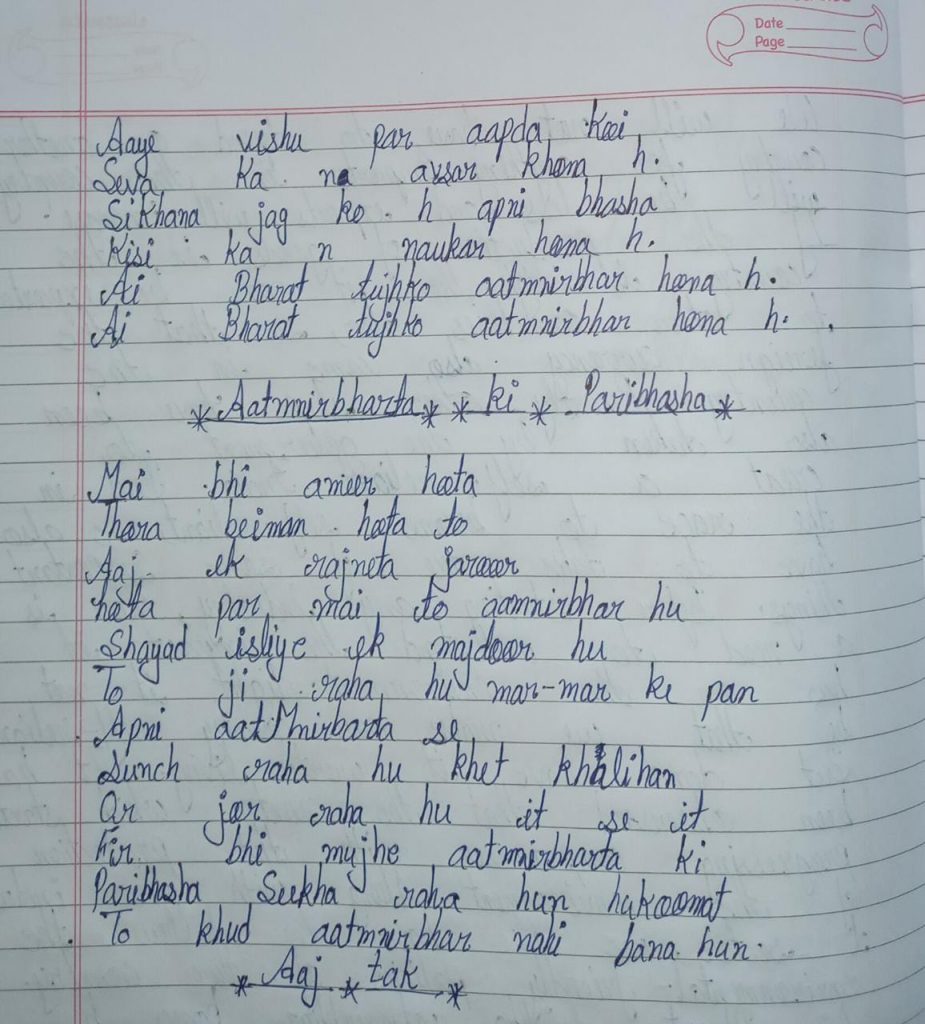 Date
Page
Aaye vishu par aapda koi,
Seva ka na avsar khona h.
Sikhana jag ko h apni bhasha
Kisi ka n naukar hona h.
Ai Bharat tujhko aatmnirbhar hona h.
Ai Bharat tujhko aatmnirbhar hona h.
* Aatmnirbharta * * ki * Paribhasha *
Mai bhi ameer hota
Thora beiman hota to
Aaj ek rajneta jaroor
hota par mai to aamnirbhar hu
Shayad isliye ek majdoor hu
To ji raha hu mar-mar ke pan
Apni aatMnirbarta se
Sunch raha hu khet khalihan
Or jor raha hu it se it
Fir bhi mujhe aatmnirbharta ki
Paribhasha Seekha raha hun hukoomat
To khud aatmnirbhar nahi bana hun.
* Aaj * tak *